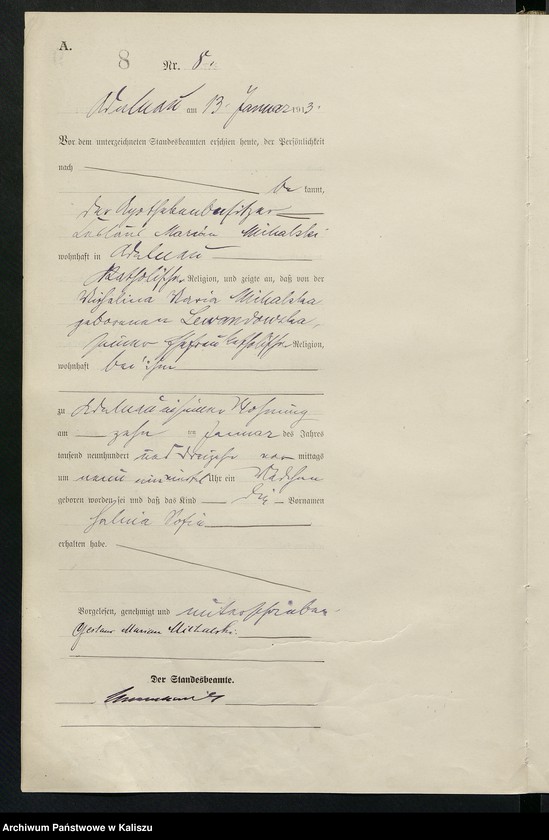 A.
8 Nr. 8.
Adelnau am 13. Januar 1913.
Vor dem unterzeichneten Standesbeamten erschien heute, der Persönlichkeit
nach be kannt,
der Apothekenbesitzer
Marian Mihalski
wohnhaft in Adelnau
katholischer Religion, und zeigte an, daß von der
Maria Mihalska
geborenen Lewandowska,
seiner Ehefrau katholischer Religion,
wohnhaft bei ihm
zu Adelnau in seiner Wohnung
am zehn ten Januar des Jahres
tausend neunhundert und dreizehn vor mittags
um neun Uhr ein Mädchen
geboren worden sei und daß das Kind die Vornamen
Sofia
erhalten habe.
Vorgelesen, genehmigt und unterschrieben
Marian Mihalski.
Der Standesbeamte.
Archiwum Państwowe w Kaliszu